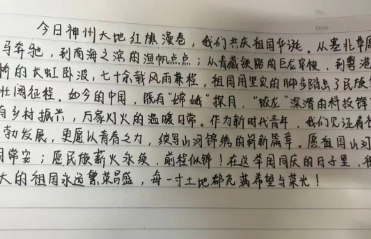 今日神州大地红旗漫卷，我们共庆祖国华诞，从塞北草原
马奔驰，到南海之滨的渔帆点点；从青藏铁路的巨龙穿梭，到粤港
桥的长虹卧波，七十余载风雨兼程，祖国用坚实的脚步踏出了民族
壮阔征程。如今的中国，既有"嫦娥"探月，"蛟龙"深潜的科技锋
有乡村振兴，万家灯火的温暖日常。作为新时代青年，我们见证着
劲发展，更愿以青春之力，续写山河锦绣的崭新篇章。愿祖国山河
国常安；愿民族薪火永续，前程似锦！在这举国同庆的日子里，祝
大的祖国永远繁荣昌盛，每一寸土地都充满希望与荣光！